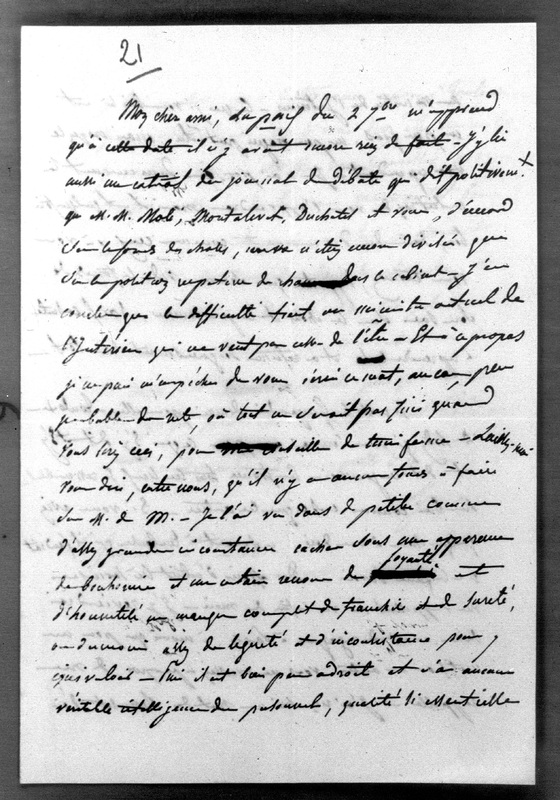 21
Mon cher ami, La paix du 27bre m'apprend
qu'à cette date il n'y avait encore rien de fait – J'y lis
aussi un extrait du journal des débats qui dit positivement
que M. M. Molé, Montalivet, Duchatel et vous, d'accord
sur le fond des choses, vous n'étiez encore divisés que
sur la position respective de chacun dans le cabinet – J'en
conclus que la difficulté tient au ministre actuel de
l'Intérieur qui ne veut pas cesser de l'être – Et à ce propos
je ne puis m'empêcher de vous écrire ce mot, au cas peu
probable du reste, où tout ne serait pas fini quand
vous lirez ceci, pour de terminer – Laissez-moi
vous dire, entre nous, qu'il n'y a aucun fonds à faire
sur M. de M. – Je l'ai vu dans de petites comme
d'assez grandes circonstances cacher sous une apparence
de bonhomie et un certain renom de loyauté et
d'honnêteté un manque complet de franchise et de sureté,
ou du moins assez de légèreté et d'inconsistance pour y
équivaloir – Puis il est bien peu adroit et n'a aucune
véritable intelligence du personnel, qualité si essentielle